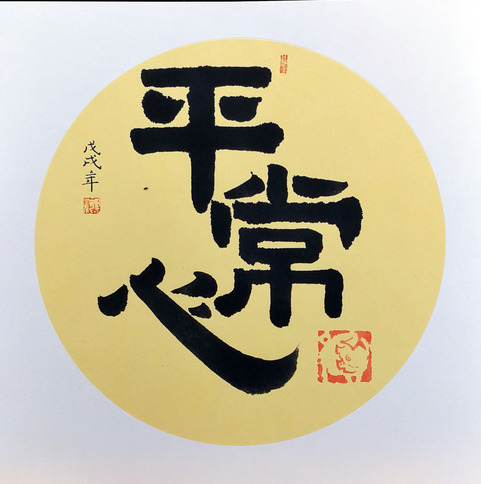 平常心
戊戌年